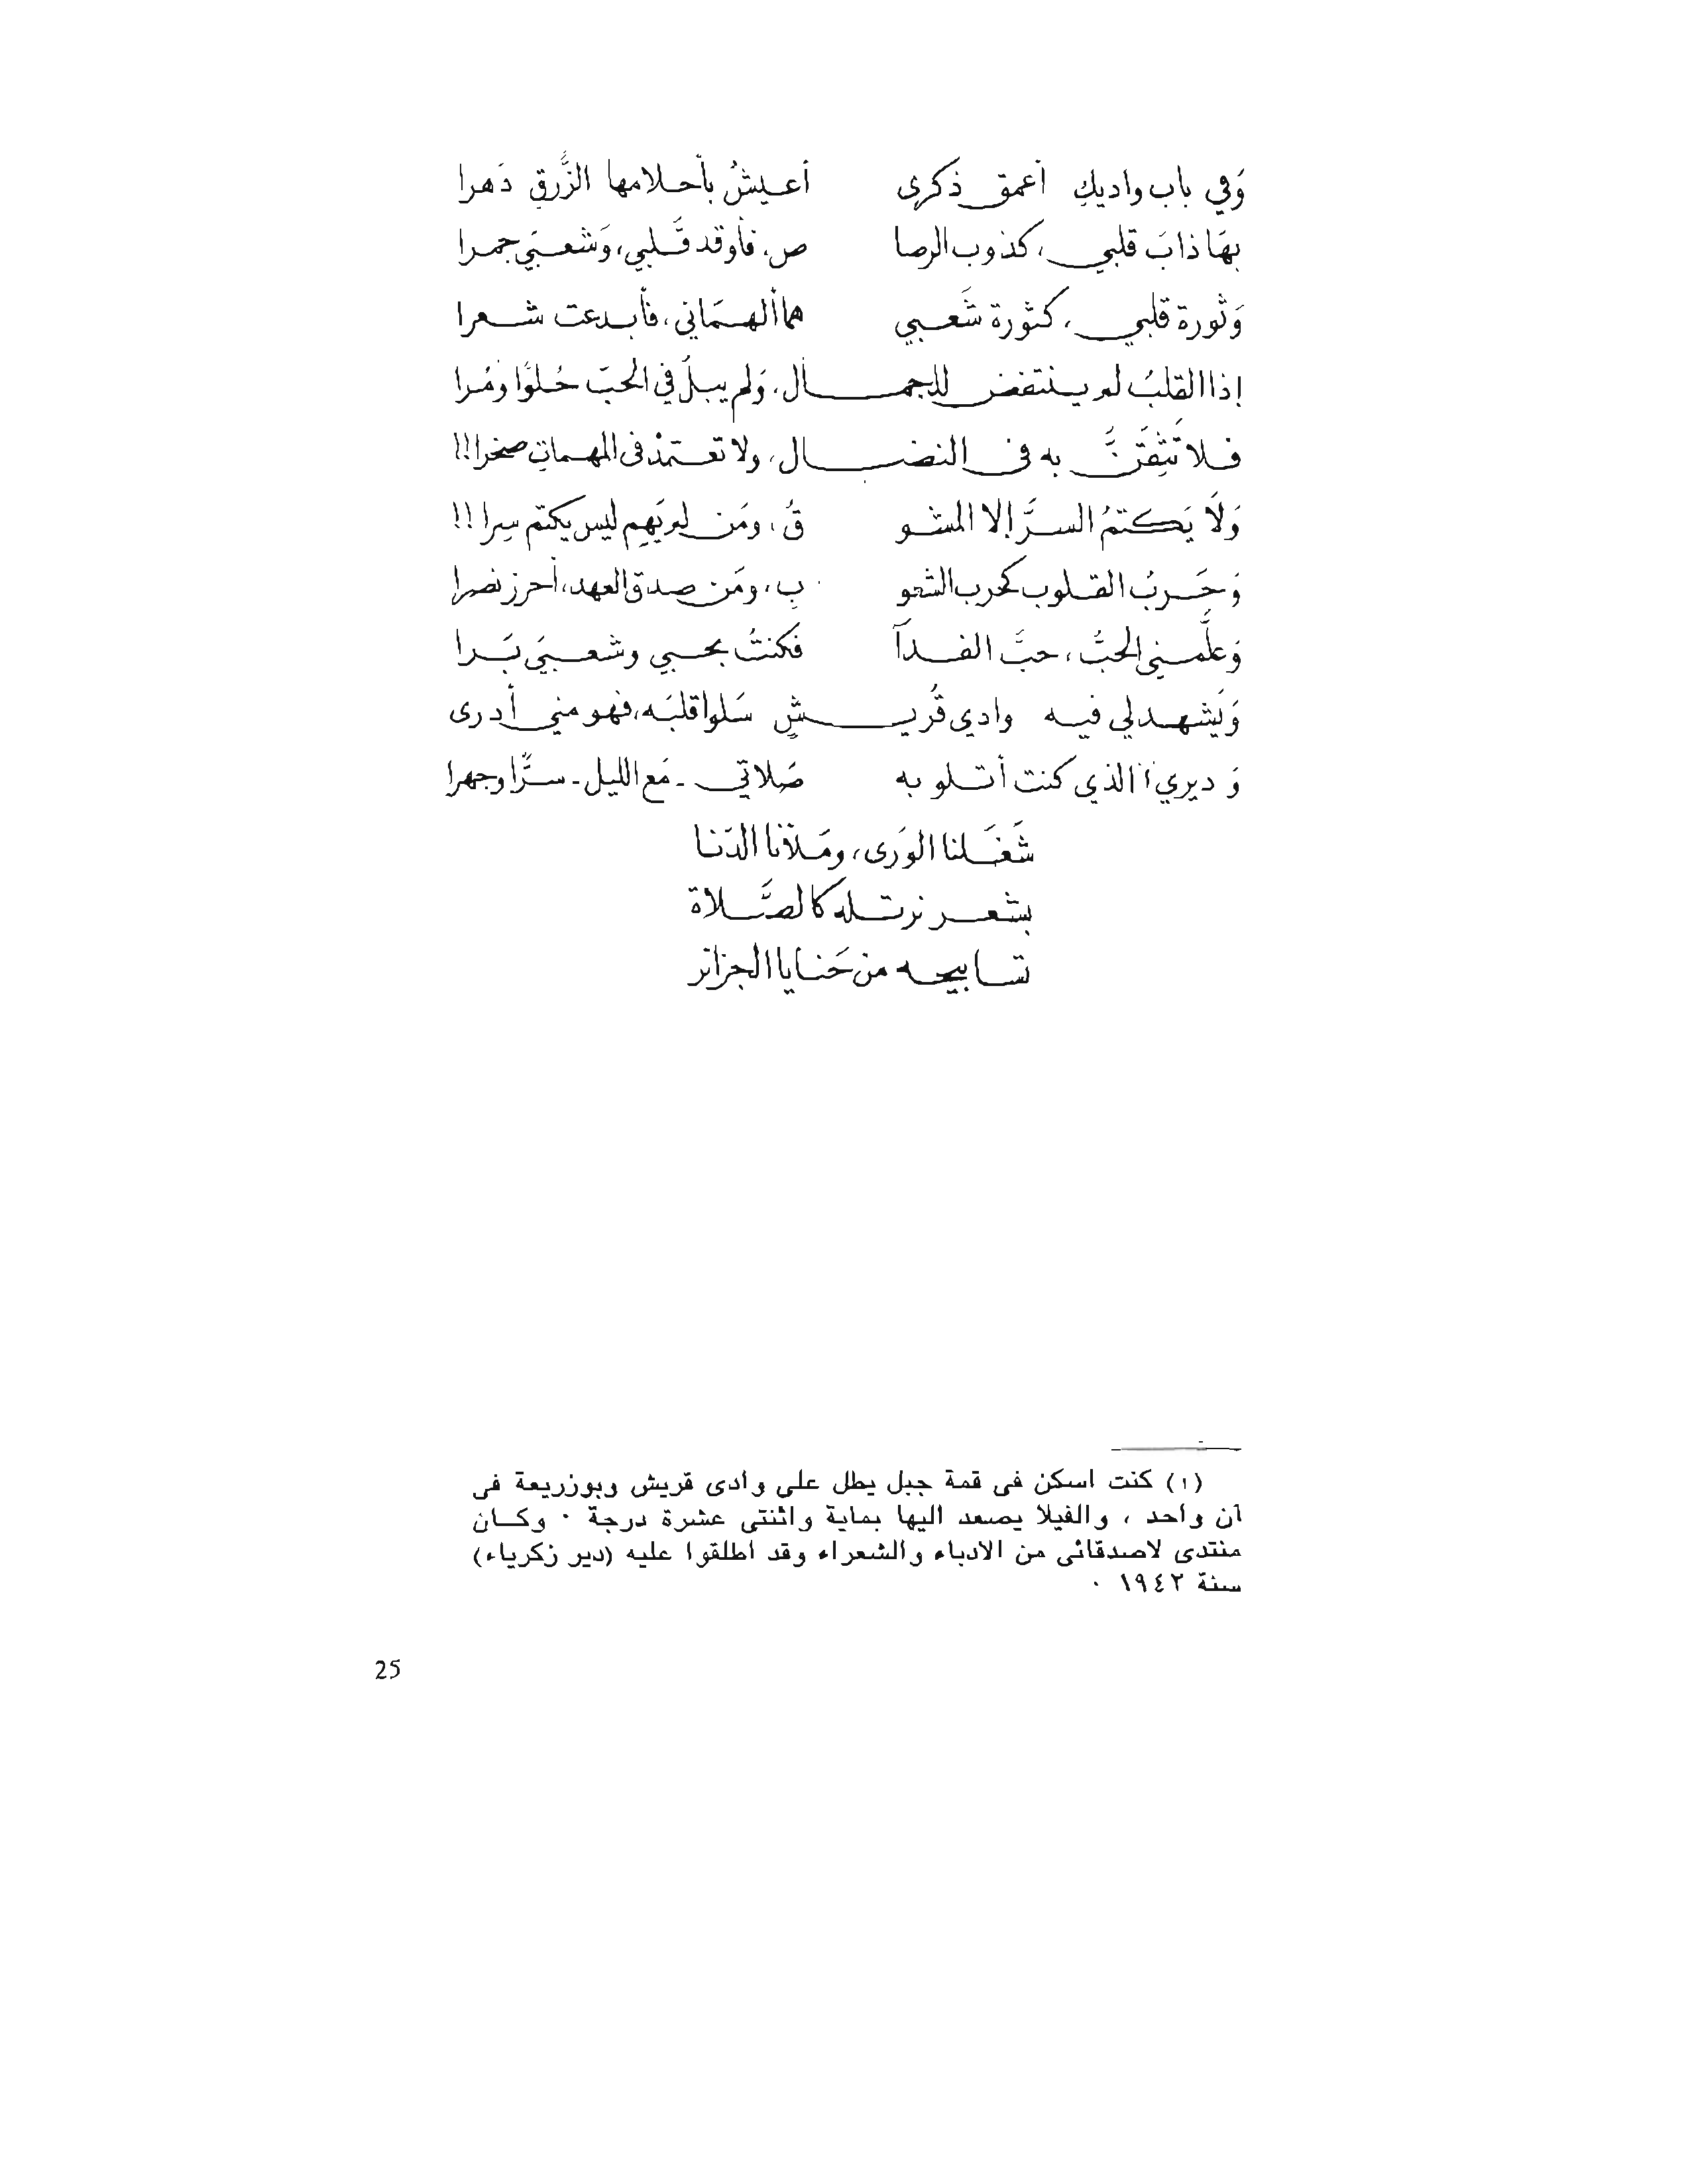 وَفي باب واديكِ أعمق ذكرى أعيشُ بأحلامها الزَّرقِ دَهرا
بهَا ذابَ قلبي، كذوب الرصا ص، فأوقد قَلبي، وَشعبيَ جمرا
وَثورة قلبي، كثورة شَعبي هما ألهمَاني، فأبدعت شعرا
إذا القلبُ لم ينتفض للجمال، وَلم يبلُ في الحبّ حُلوًا ومُرا
فلا تَثِقَنَّ به في النضال، ولا تعتمدْ في المهمات صخرا!!
وَلَا يَكتمُ السرَّ إلا المشو قُ، ومَن لم يَهِم ليس يكتم سِرا!!
وَحَربُ القلوب كحرب الشعو بِ، ومَن صدق العهد، أحرز نصرا
وَعلَّمني الحبُّ، حبَّ الفدآ فكنتُ بحبي وشعبيَ بَرا
وَيَشهد لي فيه وادي قُريشٍ سَلوا قلبَه، فهو مني أدرى
وَ ديري¹ الذي كنت أتلو به صَلاتي - مَع الليل - سرًّا وجهرا
شَغَلنا الوَرى، ومَلأنا الدّنا
بشعر نرتله كالصَّلاة
تسابيحه من حَنايا الجزائر
(١) كنت اسكن فى قمة جبل يطل على وادى قريش وبوزريعة فى
آن واحد ، والفيلا يصعد اليها بماية واثنتى عشرة درجة ٠ وكان
منتدى لاصدقائى من الادباء والشعراء وقد اطلقوا عليه (دير زكرياء)
سنة ١٩٤٢ ٠
25